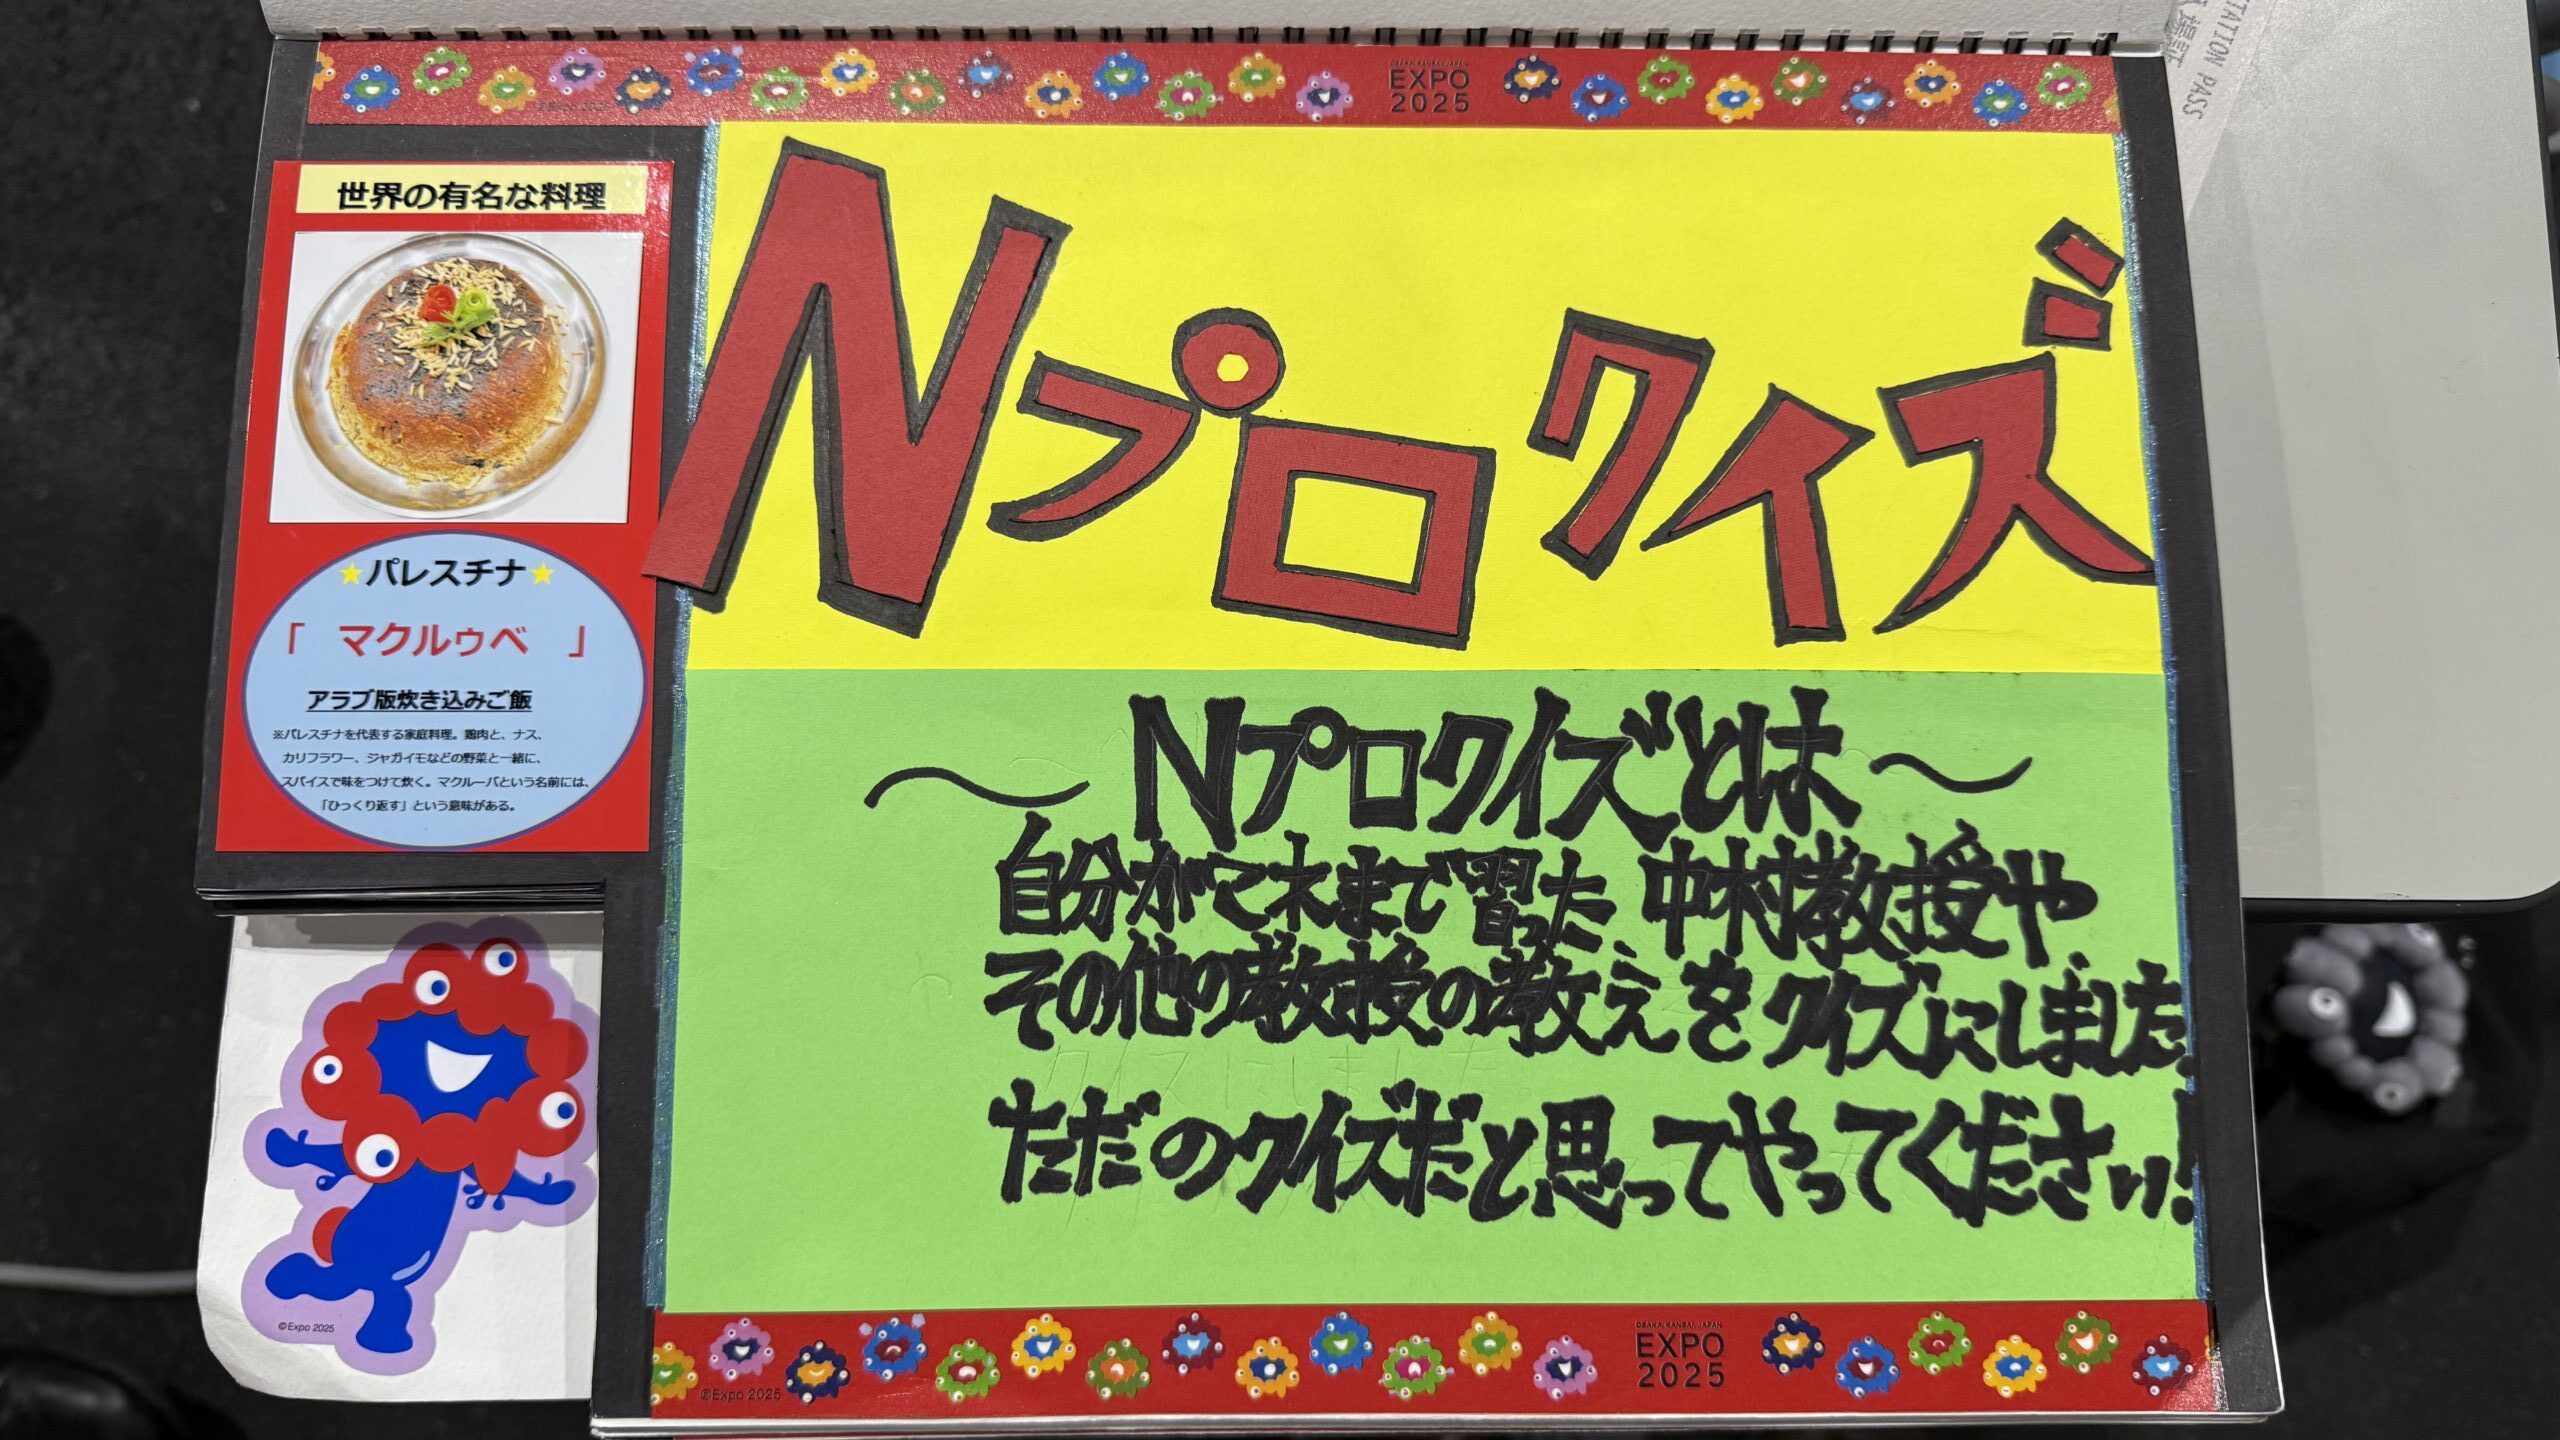 OSAKA, KANSAI, JAPAN
EXPO
2025
©Expo 2025
TATION PASS
世界の有名な料理
パレスチナ
「 マクルゥベ 」
アラブ版炊き込みご飯
※パレスチナを代表する家庭料理。鶏肉と、ナス、
カリフラワー、ジャガイモなどの野菜と一緒に、
スパイスで味をつけて炊く。マクルーバという名前には、
「ひっくり返す」という意味がある。
©Expo 2025
Nプロクイズ
〜Nプロクイズとは〜
自分がこれまで習った中村教授や
その他の教授の教えをクイズにしました。
ただのクイズだと思ってやってください!
OSAKA, KANSAI, JAPAN
EXPO
2025
©Expo 2025